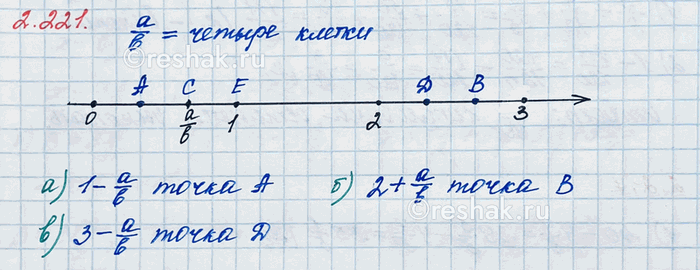 2.221. a/b = четыре клетки
A C E D B
0 a/b 1 2 3
а) 1 - a/b точка A б) 2 + a/b точка B
в) 3 - a/b точка D
reshak.ru